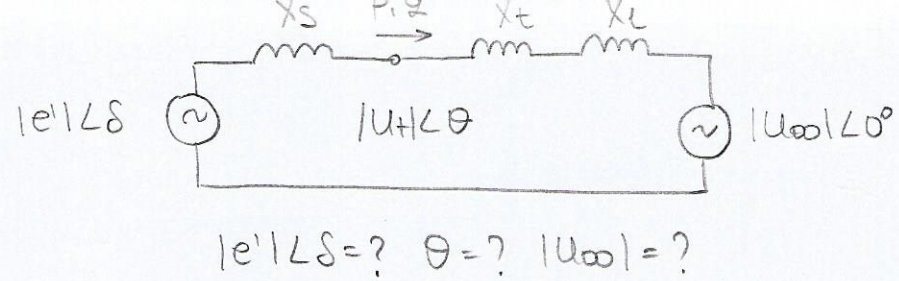 Xs P, Q Xt Xl
~ ~
|e'|∠δ |Ut|∠θ |U∞|∠0°
|e'|∠δ=? θ=? |U∞|=?